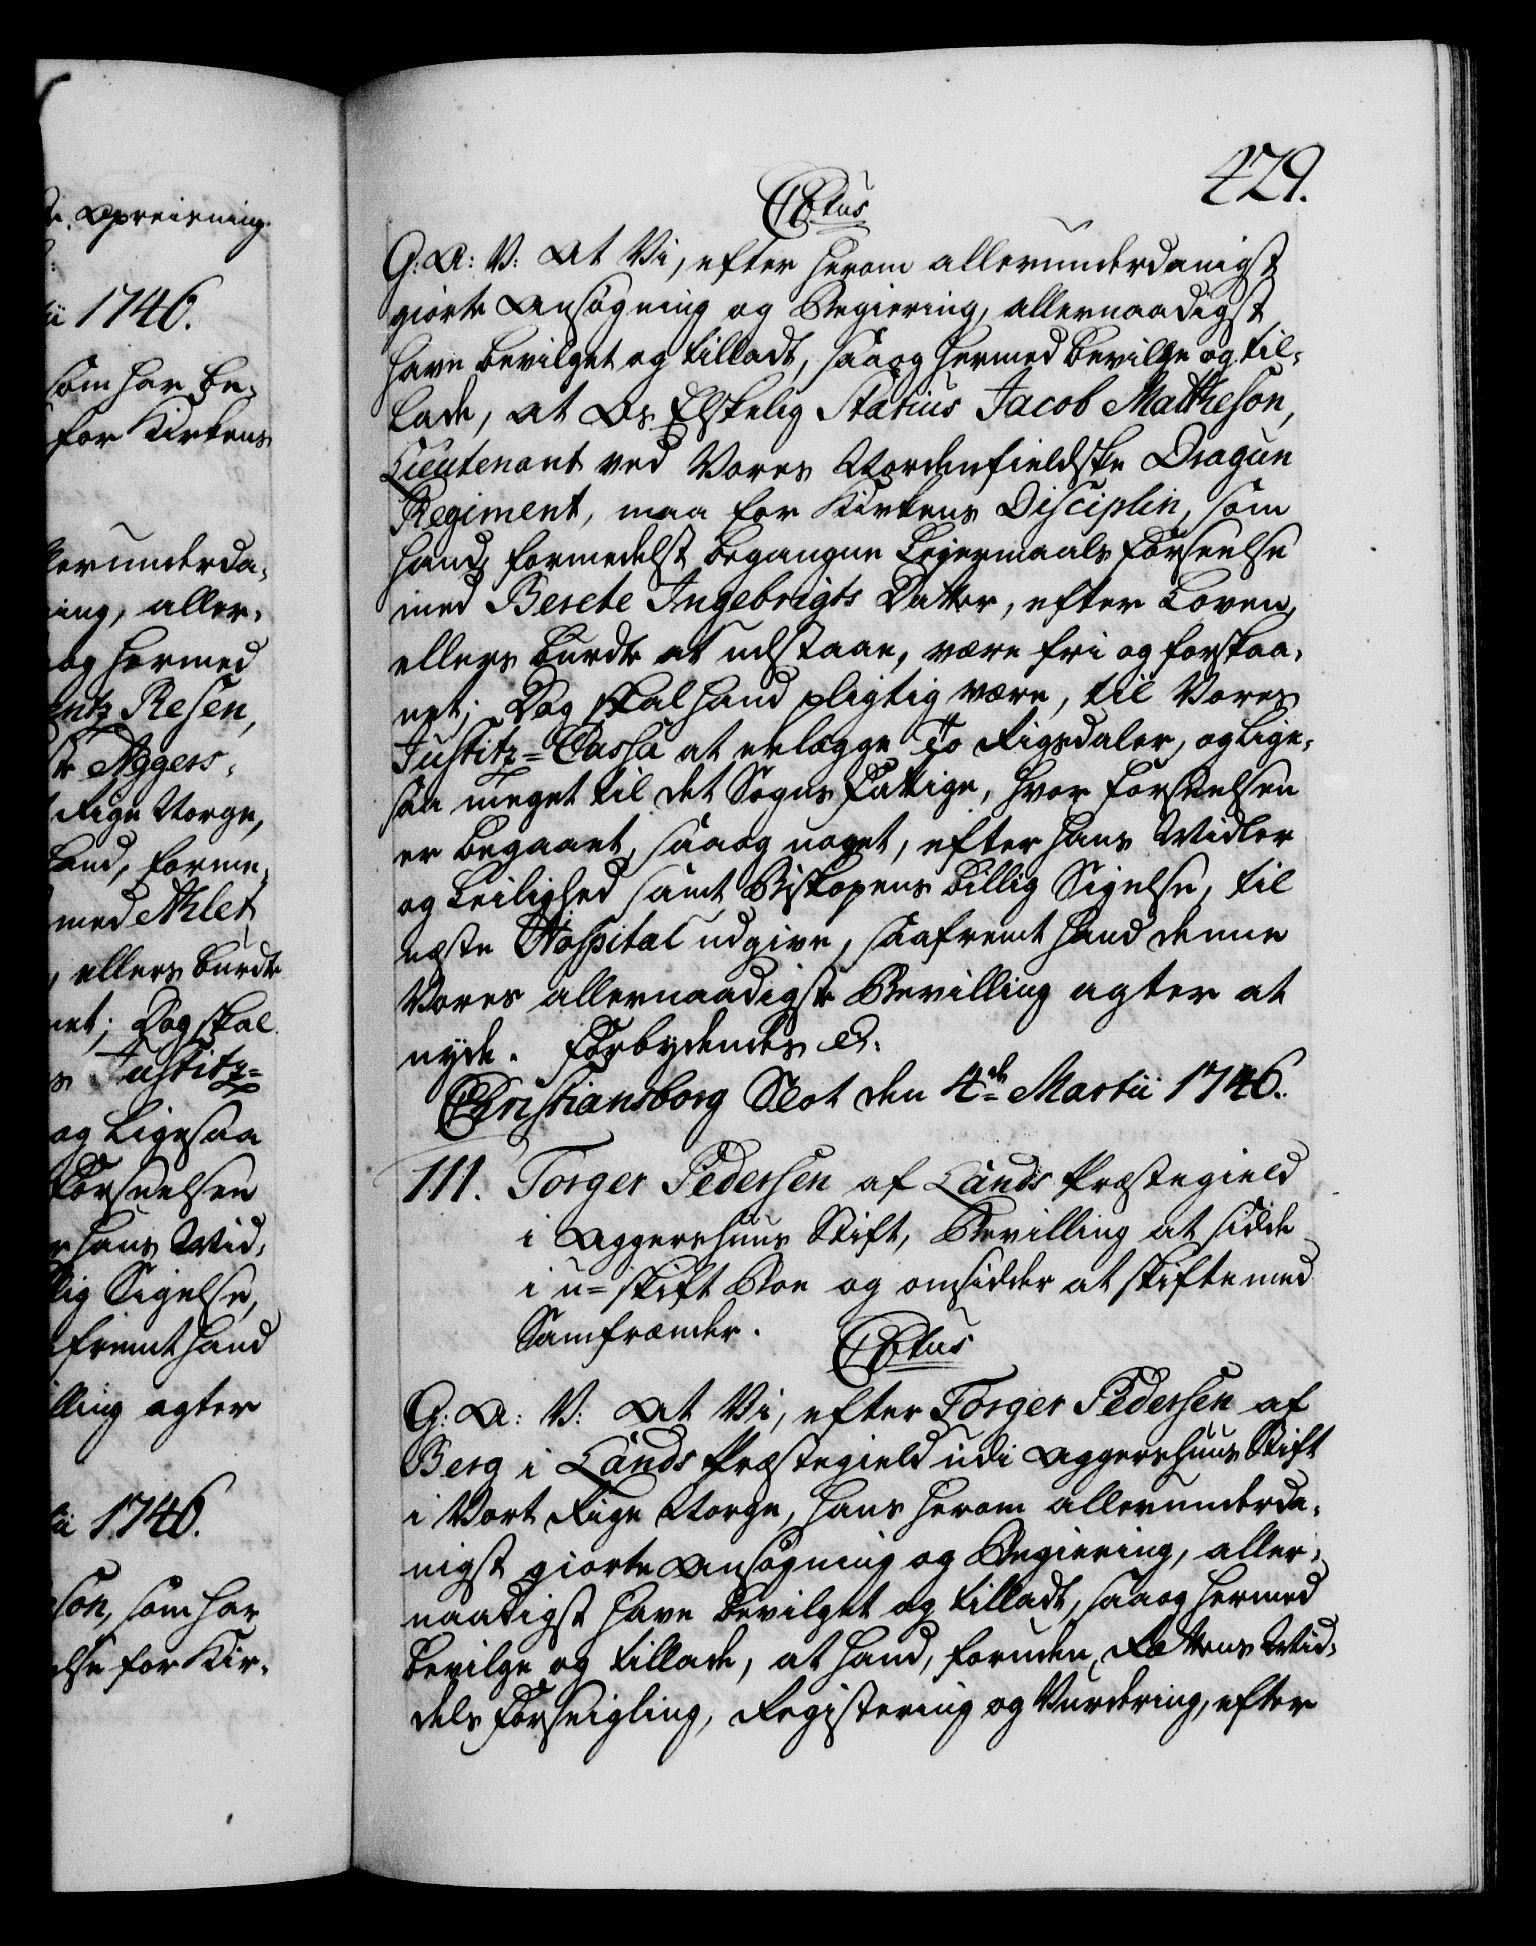 r. Opreisning.
ii 1746.
som har be¬
for Kirkens
lerunderda¬
ing, aller¬
og hermed
entz Resen,
Aggers¬
Rige Norge,
hand, forme¬
med Ahlet
, ellers burde
net; Dog skal
s Justitz=
og Ligesaa
Forseelsen
r hans Mid¬
lig Sigelse,
fremt hand
lling agter
ii 1746.
son, som har
else for Kir¬
429.
CBtus
G: A: V: At Vi, efter herom allerunderdanigst
giorte Ansøgning og Begiering, allernaadigst
have bevilget og tilladt, saa og hermed bevilge og til¬
lade, at Os Elskelig Statius Jacob Matheson,
Lieutenant ved Vores Nordenfieldske Dragun
Regiment, maa for Kirkens Disciplin, som
hand, formedelst begangne Leyermaals Forseelse
med Berete Ingebrigts Datter, efter Loven,
ellers burde at udstaae, være fri og forskaa¬
net; Dog skal hand pligtig være, til Vores
Justitz=Cassa at erlægge To Rigsdaler, og Lige¬
saa meget til det Sogns Fattige, hvor Forseelsen
er begaaet, saa og noget, efter hans Midler
og Leilighed samt Biskopens billig Sigelse, til
næste Hospital udgive, saafremt hand denne
Vores allernaadigste Bevilling agter at
nyde. Forbydendes &.
Christiansborg Slot den 4de Martii 1746.
111. Torger Pedersen af Lands Præstegield
i Aggershuus Stift, Bevilling at sidde
i u=skift Boe og omsidder at skifte med
Samfrænder.
CBtus
G: A: V: At Vi, efter Torger Pedersen af
Berg i Lands Præstegield udi Aggershuus Stift
i Vort Rige Norge, hans herom allerunderda¬
nigst giorte Ansøgning og Begiering, aller¬
naadigst have bevilget og tilladt, saa og hermed
bevilge og tillade, at hand, foruden Rettens Mid¬
dels Forseigling, Registering og Vurdering, efter